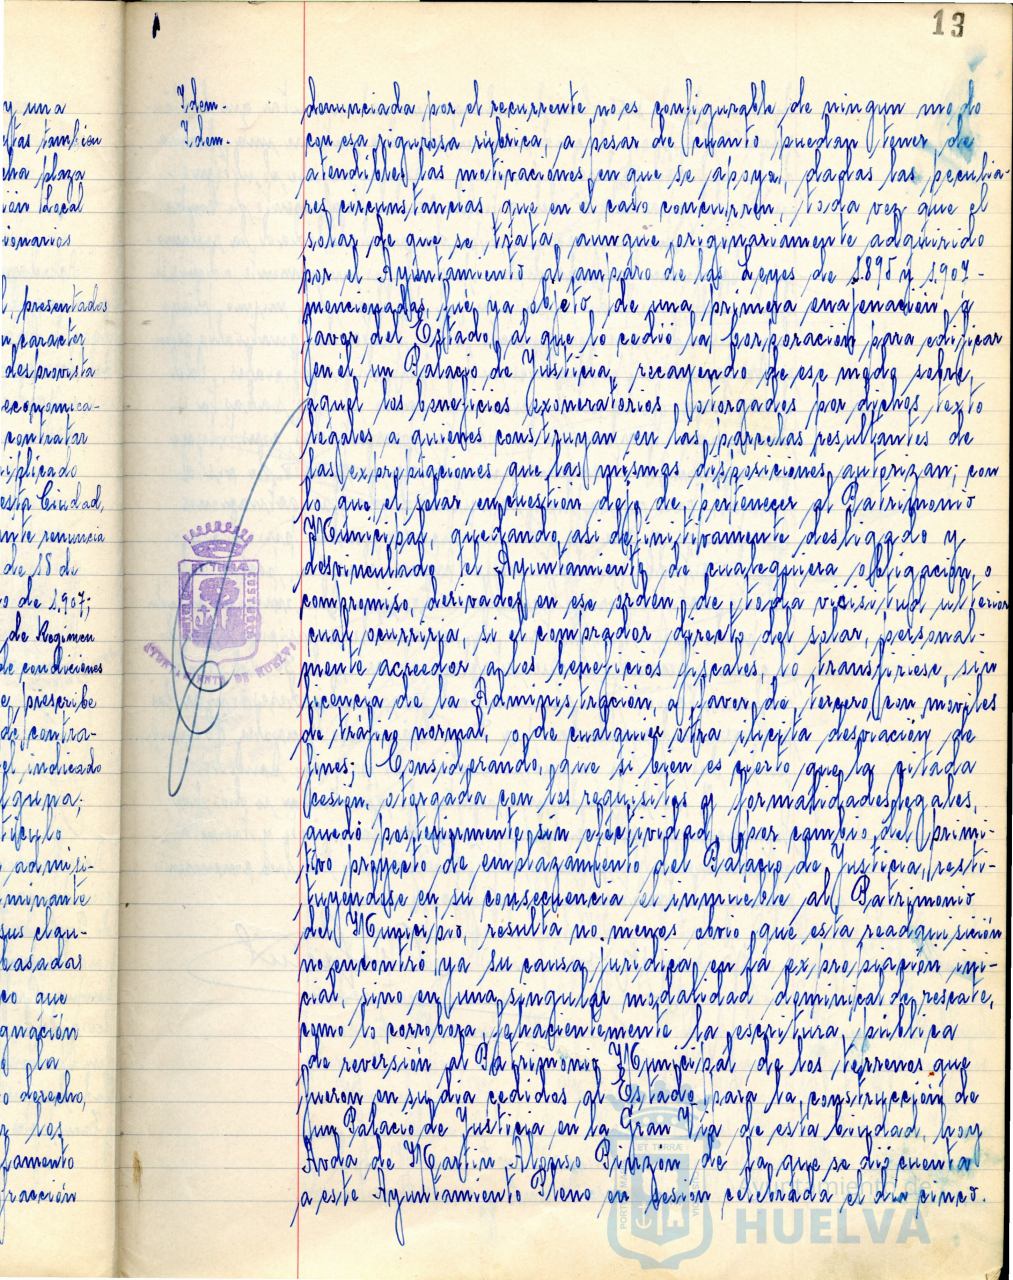 13
y una
ella plaza
ión Local
ionarios
presentados
n caracter
desprovista
economica-
contratar
iplicado
esta Ciudad,
nte renuncia
de 18 de
o de 1.907;
de Regimen
de condiciones
e, prescribe
de contra-
el indicado
lguna;
tículo
admisi-
minante
sus clau-
casadas
co que
gnación
la
o derecho,
los
famento
fracción
Idem.
Idem.
denunciada por el recurrente, no es configurable de ningun modo
con esa rigurosa rúbrica, a pesar de cuanto puedan tener de
atendibles las motivaciones en que se apoya, dadas las peculia-
res circunstancias que en el caso concurren, toda vez que el
solar de que se trata, aunque originariamente adquirido
por el Ayuntamiento al amparo de las Leyes de 1.895 y 1.907-
mencionadas, fué ya objeto de una primera enajenación a
favor del Estado, al que lo cedió la Corporación para edificar
en el un Palacio de Justicia, recayendo de ese modo sobre
aquel los beneficios exoneratorios otorgados por dichos texto
legales a quienes construyan en las parcelas resultantes de
las expropiaciones que las mismas disposiciones autorizan; con
lo que el solar en cuestión dejó de pertenecer al Patrimonio
Municipal, quedando así definitivamente desligado y
desvinculado el Ayuntamiento de cualequiera obligación o
compromiso, derivados en ese orden de toda vicisitud ulterior
cual ocurriria, si el comprador directo del solar, personal-
mente acreedor a los beneficios fiscales, lo transfiriese, sin
licencia de la Administración, a favor de tercero con moviles
de tráfico normal, o de cualquier otra ilicita desviación de
fines; Considerando, que si bien es cierto que la citada
cesión, otorgada con los requisitos y formalidades legales,
quedó posteriormente sin efectividad, por cambio del primi-
tivo proyecto de emplazamiento del Palacio de Justicia, resti-
tuyendose en su consecuencia el inmueble al Patrimonio
del Municipio, resulta no menos obvio que esta readquisición
no encontró ya su causa juridica en la expropiación ini-
cial, sino en una singular modalidad dominical de rescate,
como lo corrobora fehacientemente la escritura pública
de reversión al Patrimonio Municipal de los terrenos que
fueron en su dia cedidos al Estado para la construcción de
un Palacio de Justicia en la Gran Vía de esta Ciudad, hoy
Avda de Martin Alonso Pinzón de la que se dió cuenta
a este Ayuntamiento Pleno en sesion celebrada el dia cinco.
AYUNTAMIENTO DE HUELVA
Ayuntamiento de
HUELVA